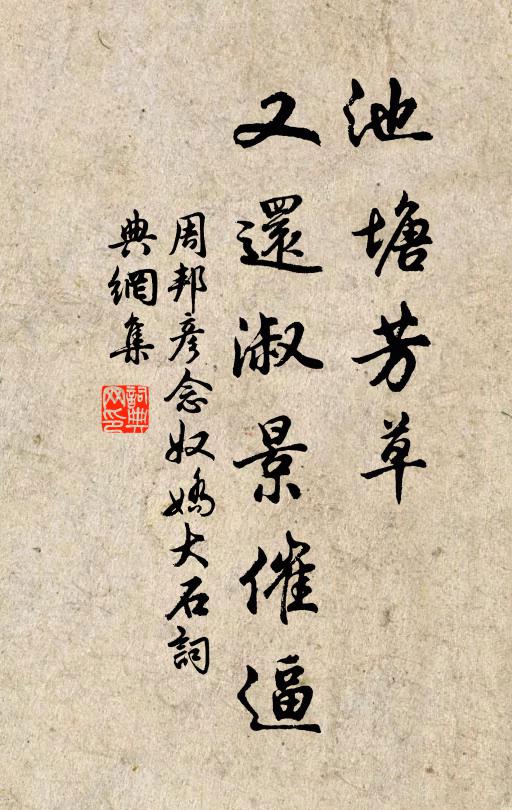 池塘芳草
又還淑景催逼
周邦彥念奴嬌大石詞
典網集
詞典
网印